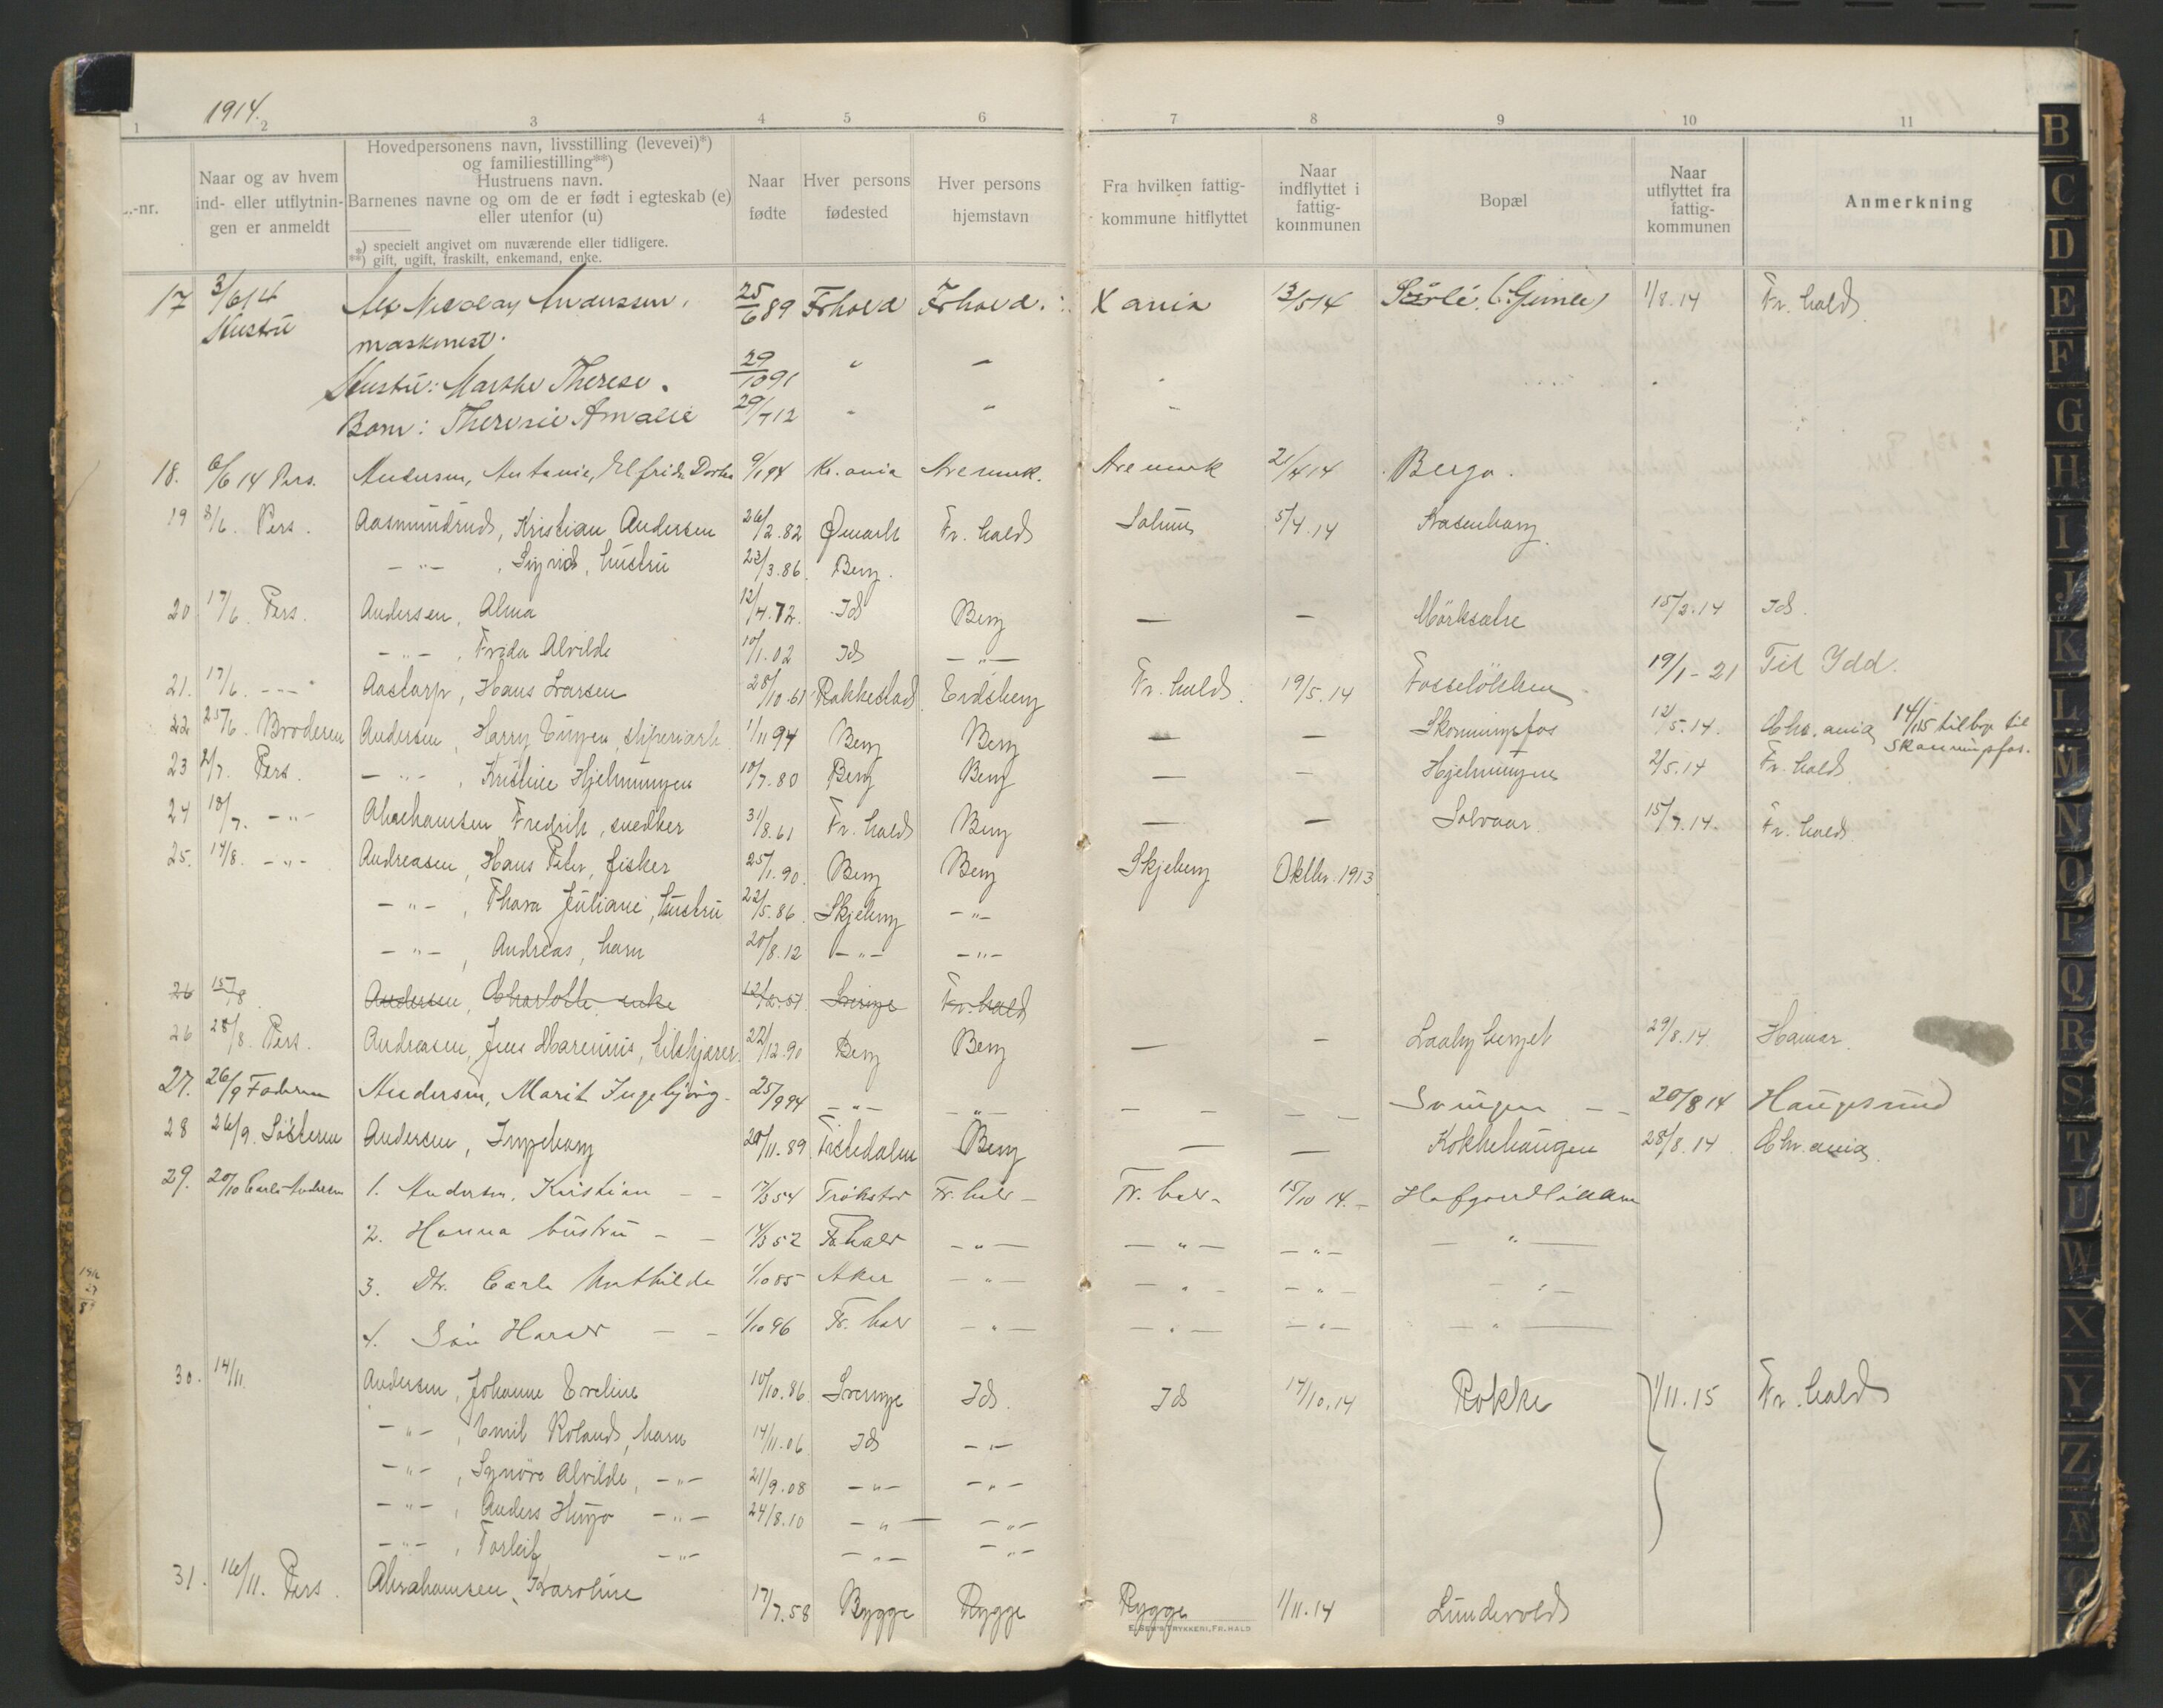 1914.
1 2 3 4 5 6 7 8 9 10 11
-nr.
Naar og av hvem ind- eller utflytnin-gen er anmeldt
Hovedpersonens navn, livsstilling (levevei)*)
og familiestilling**)
Hustruens navn.
Barnenes navne og om de er født i egteskab (e)
eller utenfor (u)
*) specielt angivet om nuværende eller tidligere.
**) gift, ugift, fraskilt, enkemand, enke.
Naar fødte
Hver persons fødested
Hver persons hjemstavn
Fra hvilken fattig-kommune hitflyttet
Naar indflyttet i fattig-kommunen
Bopæl
Naar utflyttet fra fattig-kommunen
Anmerkning
17 3/6 14 Alf Nicolay Anderssen, 25/6 89 Frhald Frhald. X ania 13/5 14 (Gimle) 1/8.14 Fr. hald
Hustru maskinist.
Hustru: Marthe Therese. 29/10 91 " "
Barn: Theresie Amalie 29/7 12 " "
18. 6/6 14 Pers. Andersen, Antonie, Elfrida Dorthea 9/1 94 Kr.ania Aremark. Aremark 21/4 14 Berga.
19 8/6. Pers. Aasmundrud, Kristian Andersen 26/2.82 Ømark Fr. hald Solum 5/4.14 Krasenborg
— " — , Sigrid, hustru 23/3.86. Berg.
20 17/6. Pers. Andersen, Alma 12/4.72. Id Berg — — Mörksætre 15/3.14 Id.
— " — , Frida Alvilde 10/1.02 Id — " —
21. 17/6. — " — Aastorp, Hans Larsen 28/10.61 Rakkestad Eidsberg Fr. hald. 19/5.14 Fosseløkken 19/1-21 Til Idd.
22 25/6. Broderen Andersen, Harry Eugen, sliperiarb. 1/11 94 Berg Berg — — Skonningsfos 12/5.14. Chr.ania 14/1 15 tilbage til Skonningsfos.
23 2/7. Pers. — " — , Kristine Hjelmungen 10/7.80 Berg Berg — — Hjelmungen 2/5.14 Fr. hald
24 10/7. — " — Abrahamsen Fredrik, snedker 31/8.61 Fr. hald Berg — — Solvaar 15/7.14. Fr. hald
25. 14/8. — " — Andreasen, Hans Peter, fisker 25/1.90. Berg Berg Skjeberg Oktbr. 1913
— " — , Thora Juliane, hustru 22/5.86. Skjeberg — " —
— " — , Andreas, barn 20/8.12 — " — — " —
26 15/8 Andersen, Charlotte enke Fr. hald
26 28/8. Pers. Andreasen, Jens Marenius, bilkjører. 22/12.90 Berg Berg — — Laaby berget 29/8.14. Hamar.
27. 26/9 Faderen Andersen, Marit Ingebjörg 25/9 94 — " — — " — — — — — Svingen — — 20/8 14 Haugesund
28 26/9. Søsteren Andersen, Ingeborg 20/11.89 Tistedalen Berg — — Kokkehaugen 28/8.14 Chr.ania.
29. 20/10 Carl Andersen 1. Andersen, Kristian — — 17/3 54 Trøkstad Fr. hald — Fr. hald — 15/10 14. —
2. Hanna hustru — — 14/3 52 Fr hald — " — — " — — " — — " —
3. Dtr. Carla Mathilde 1/10 85 Aker — " — — " — — " — — " —
4. Søn Harald — — 1/10 96 Fr. hald — " — — " — — " — — " —
30. 14/11. Andersen, Johanne Eveline 10/10.86. Sverige Id. Id 14/10.14 Rokke 1/11.15 Fr. hald
— " — , Emil Roland, barn 14/11.06 Id — " —
— " — , Synöve Alvilde, — " — 21/9.08 — " — — " —
— " — , Anders Hugo — " — 24/8.10 — " — — " —
— " — , Torleif — " — — " — — " —
31. 16/11. Pers. Abrahamsen, Karoline 17/7.58 Rygge Rygge Rygge 1/11.14 Lundevold
E. SEM'S TRYKKERI, FR.HALD
B
C
D
E
F
G
H
I
J
K
L
M
N
O
P
Q
R
S
T
U
W
X
Y
Z
Æ
Ø